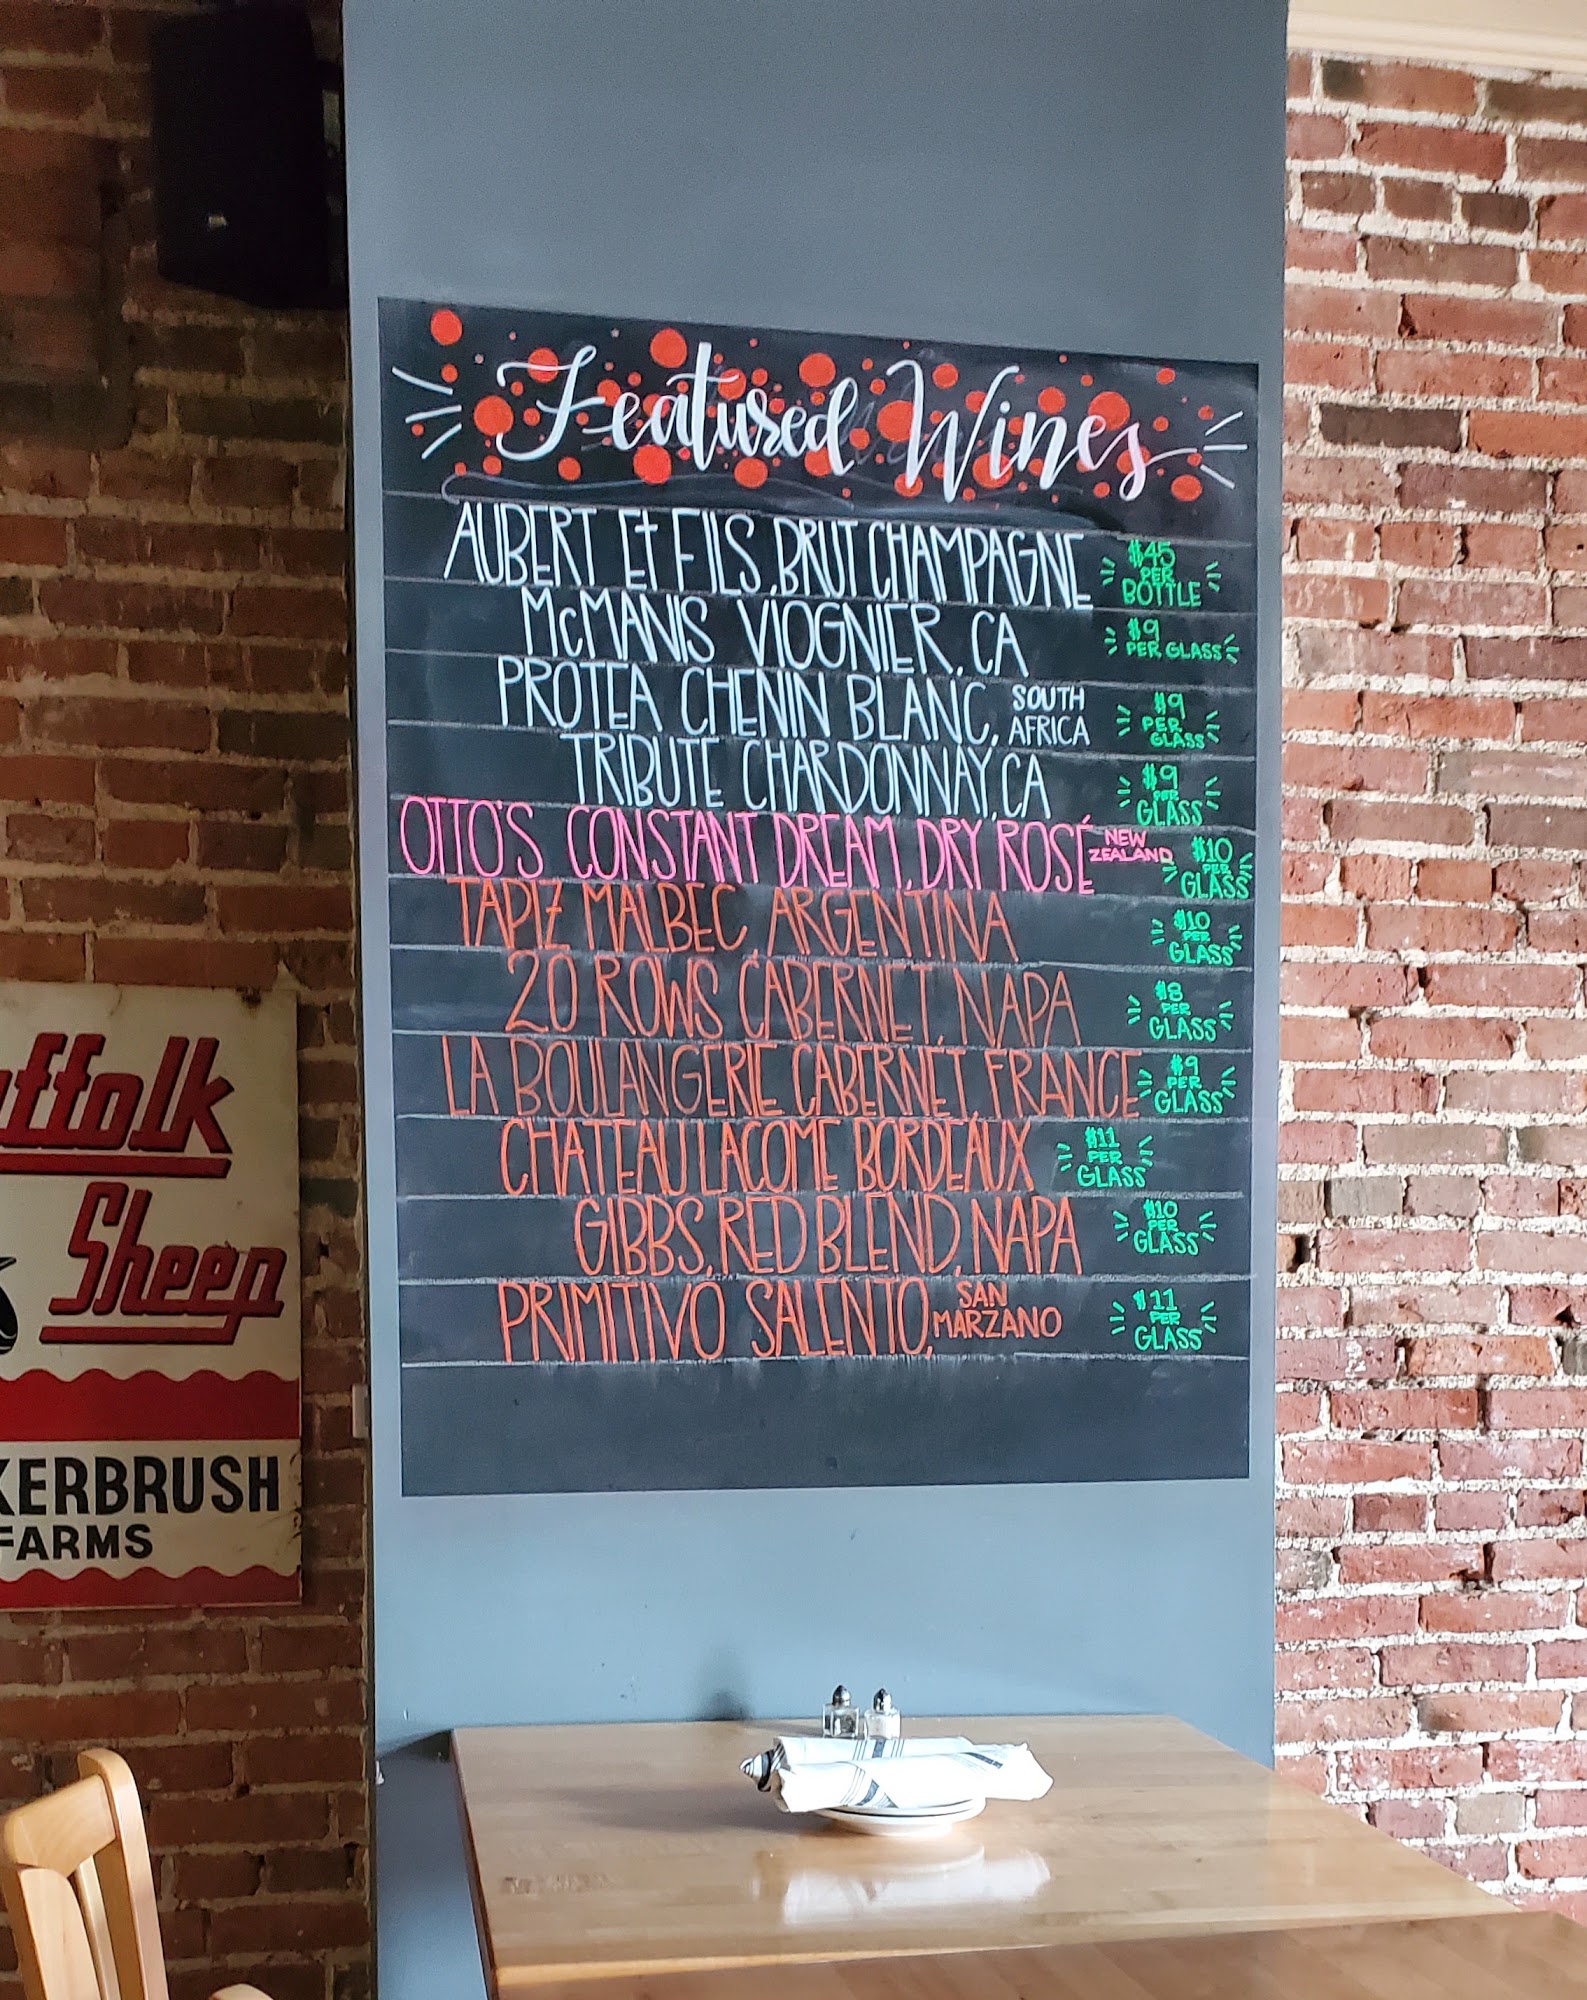 Featured Wines
AUBERT Et FILS, BRUT CHAMPAGNE $45 PER BOTTLE
McMANIS VIOGNIER, CA $9 PER GLASS
PROTEA CHENIN BLANC, SOUTH AFRICA $9 PER GLASS
TRIBUTE CHARDONNAY, CA $9 PER GLASS
OTTO'S CONSTANT DREAM, DRY ROSÉ NEW ZEALAND $10 PER GLASS
TAPIZ MALBEC, ARGENTINA $10 PER GLASS
20 ROWS CABERNET, NAPA $8 PER GLASS
LA BOULANGERIE CABERNET, FRANCE $9 PER GLASS
CHATEAU LACOME BORDEAUX $11 PER GLASS
GIBBS, RED BLEND, NAPA $10 PER GLASS
PRIMITIVO SALENTO, SAN MARZANO $11 PER GLASS
ffolk
Sheep
KERBRUSH
FARMS